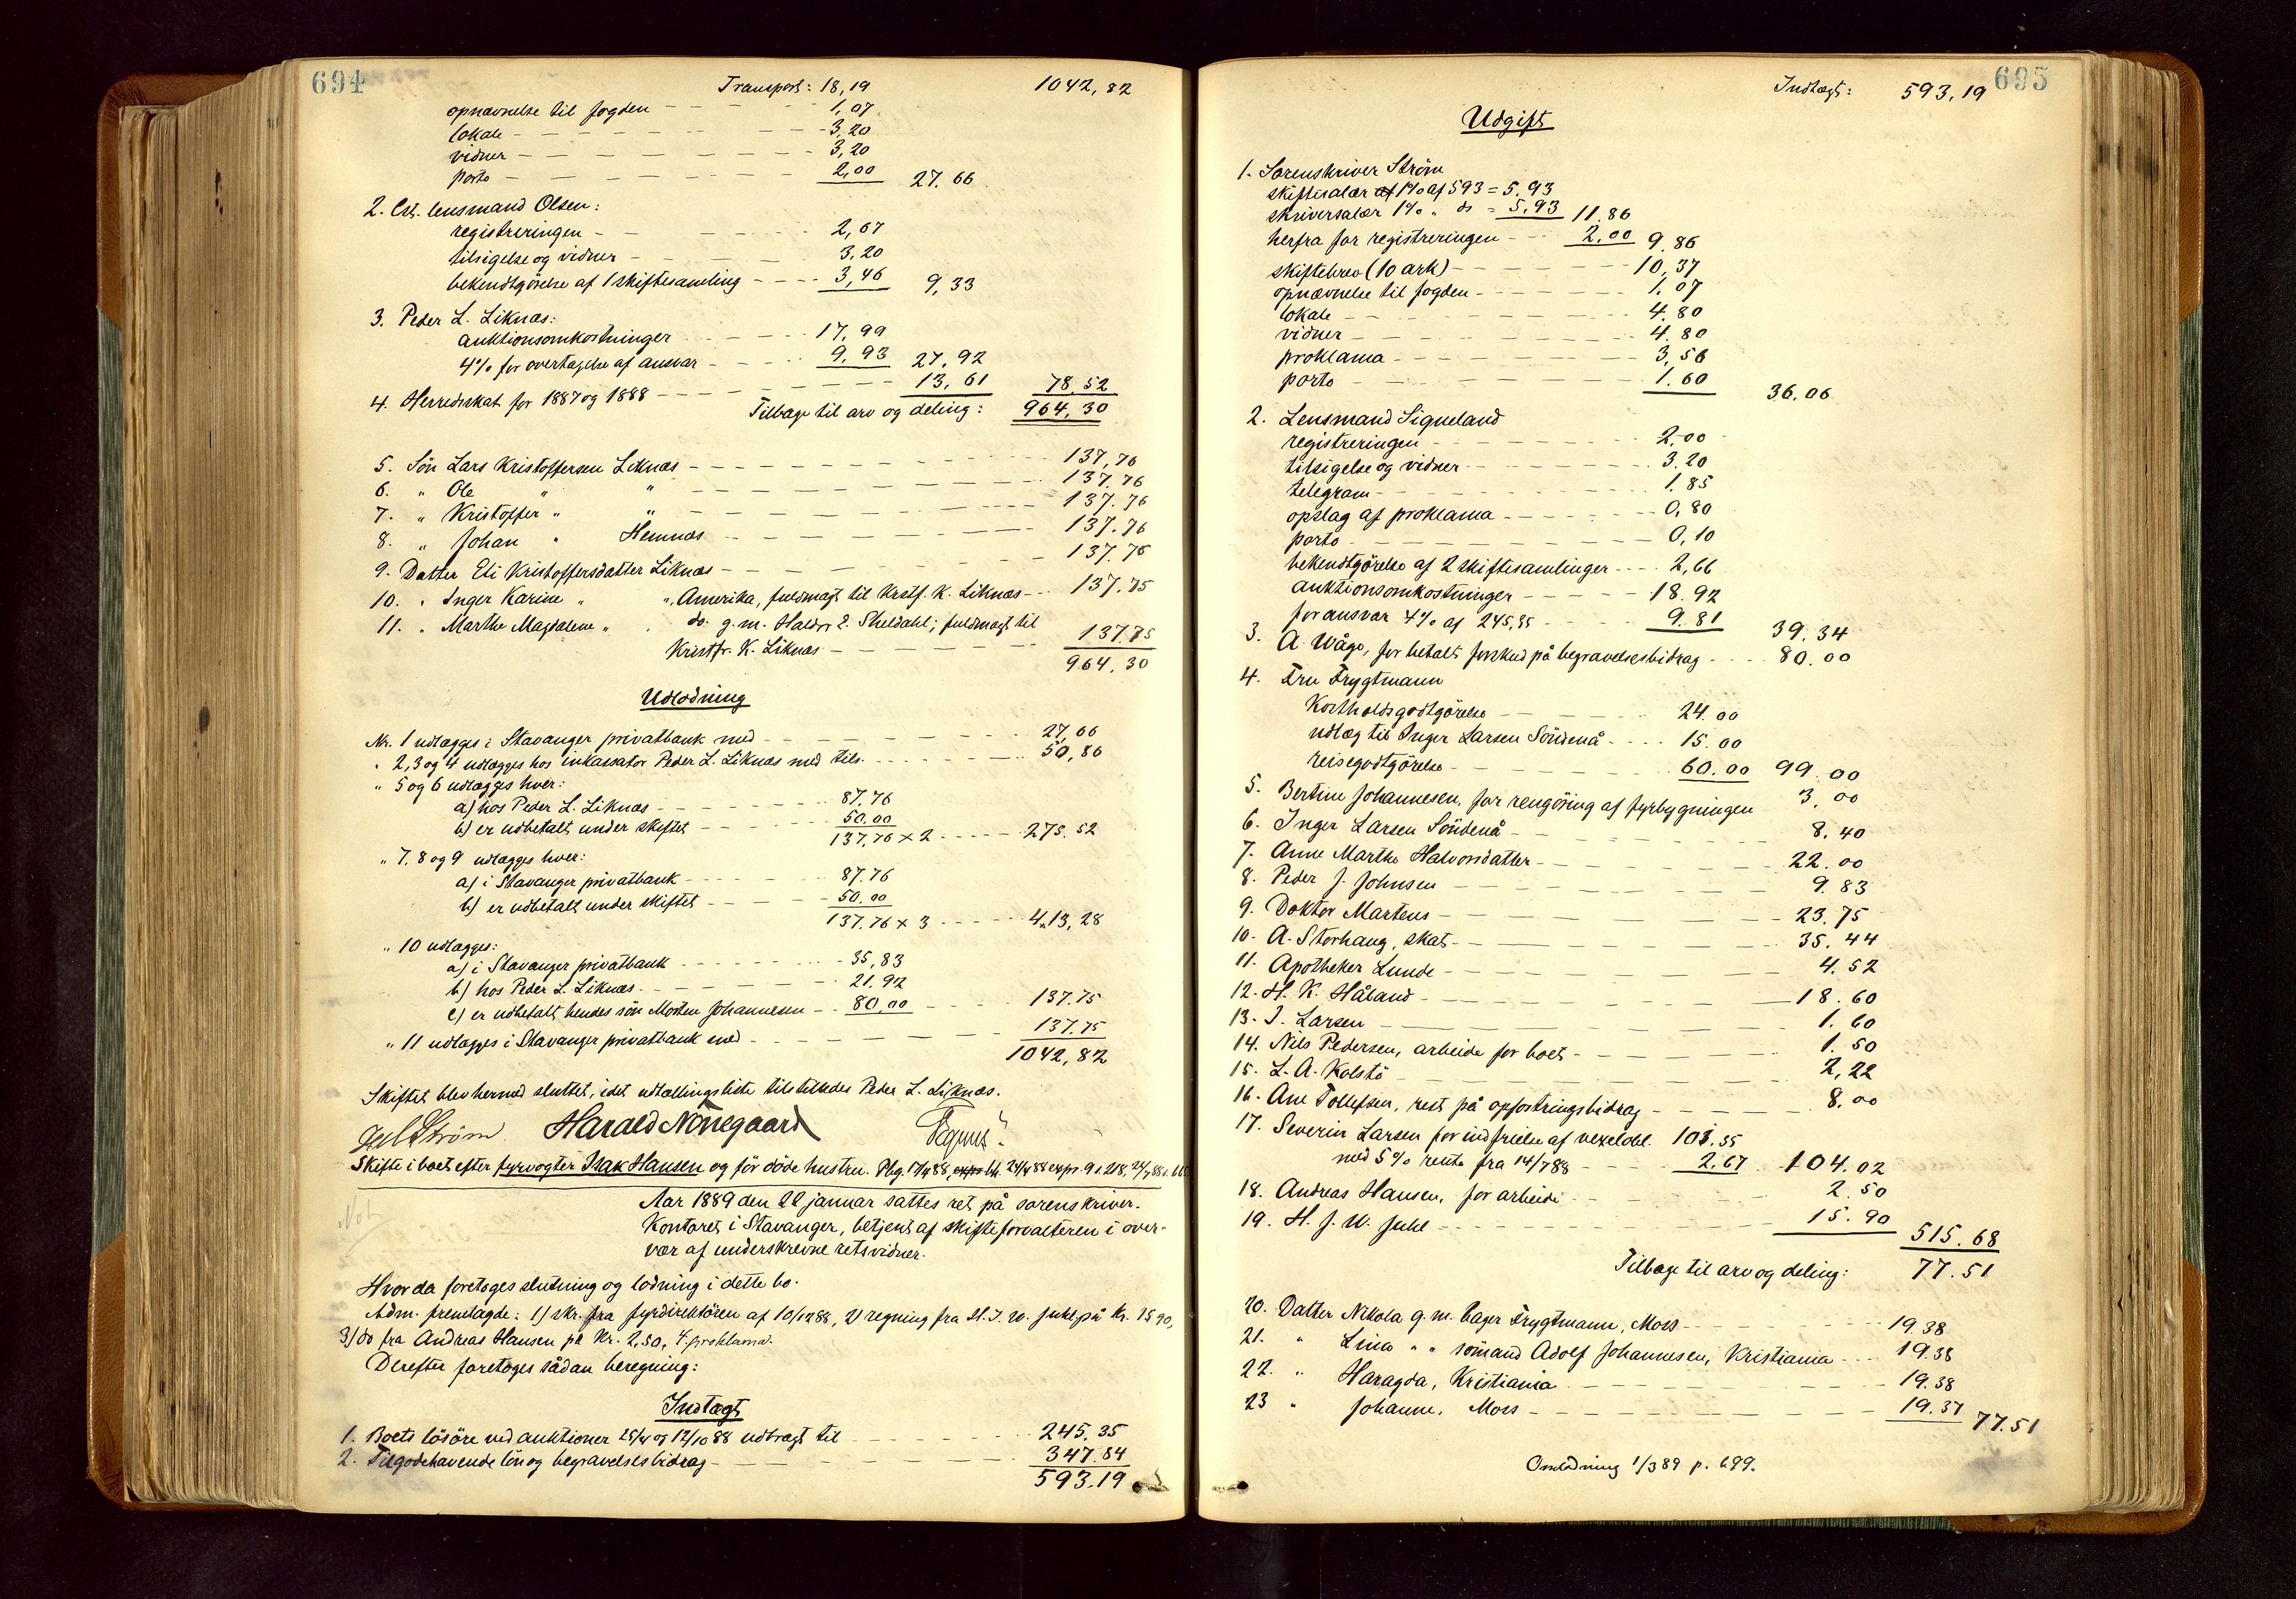 694
Transport: 18,19 1042,82
opnævnelse til fogden 1,07
lokale 3,20
vidner 3,20
porto 2,00 27.66
2. Cst. lensmand Olsen:
registreringen 2,67
tilsigelse og vidner 3,20
bekendtgörelse af 1 skiftesamling 3,46 9,33
3. Peder L. Liknæs:
auktionsomkostninger 17,99
4% for overtagelse af ansvar 9,93 27,92
4. Herredsskat for 1887 og 1888 13,61 78,52
Tilbage til arv og deling: 964,30
5. Sön Lars Kristoffersen Liknæs 137,76
6. " Ole " " 137.76
7. " Kristoffer " " 137.76
8. " Johan " Hemnæs 137.76
9. Datter Eli Kristoffersdatter Liknæs 137.76
10. " Inger Karine " ", Amerika, fuldmagt til Kristf. K. Liknæs 137.75
11. " Marthe Magdalene " " do. g.m. Haldor E. Sheldahl; fuldmagt til
Kristfr. K. Liknæs 137.75
964.30
Udlodning
Nr. 1 udlægges i Stavanger privatbank med 27,66
" 2, 3 og 4 udlægges hos inkassator Peder L. Liknæs med tils. 50,86
" 5 og 6 udlægges hver:
a) hos Peder L. Liknæs 87.76
b) er udbetalt under skiftet 50.00
137,76 x 2 275.52
" 7, 8 og 9 udlægges hver:
a) i Stavanger privatbank 87.76
b) er udbetalt under skiftet 50.00
137.76 x 3 413,28
" 10 udlægges:
a) i Stavanger privatbank 35,83
b) hos Peder L. Liknæs 21.92
c) er udbetalt hendes sön Morten Johannesen 80,00 137.75
" 11 udlægges i Stavanger privatbank med 137.75
1042,82
Skiftet blev hermed sluttet, idet udtællingsliste tilstilledes Peder L. Liknæs.
Ström Harald Nönegaard
Skifte i boet efter fyrvogter Isak Hansen og för döde hustru.
Aar 1889 den 22 januar sattes ret på sorenskriver-
kontoret i Stavanger, betjent af skifteforvalteren i over-
vær af underskrevne retsvidner.
Hvor da foretoges slutning og lodning i dette bo.
Adm. fremlagde: 1) skr. fra fyrdirektören af 10/12 88, 2) regning fra H. J. W. Juhl på kr. 15 90,
3) do fra Andreas Hansen på kr. 2,50, 4. proklama.
Derefter foretoges sådan beregning:
Indtægt
1. Boets lösöre ved auktioner og 12/10 88 udbragt til 245.35
2. Tilgodehavende lön og begravelsesbidrag 347.84
593.19
695
Indtægt: 593,19
Udgift
1. Sorenskriver Ström
skiftesalær 1% af 593 = 5.93
skriversalær 1% " do = 5,93 11.86
herfra for registreringen 2.00 9.86
skiftebrev (10 ark) 10,37
opnævnelse til fogden 1.07
lokale 4.80
vidner 4.80
proklama 3,56
porto 1.60 36.06
2. Lensmand Sigveland
registreringen 2,00
tilsigelse og vidner 3.20
telegram 1.85
opslag af proklama 0,80
porto 0,10
bekendtgörelse af 2 skiftesamlinger 2,66
auktionsomkostninger 18.92
for ansvar 4% af 245,35 9.81 39.34
3. A. Våge, for betalt forskud på begravelsesbidrag 80.00
4. Fru Frygtmann
Kostholdsgodtgörelse 24.00
udlæg til Inger Larsen Söndenå 15.00
reisegodtgörelse 60.00 99.00
5. Bertine Johannesen, for rengöring af fyrbygningen 3,00
6. Inger Larsen Söndenå 8.40
7. Anne Marthe Halvorsdatter 22.00
8. Peder J. Johnsen 9.83
9. Doktor Martens 23.75
10. A. Storhaug, skat 35.44
11. Apotheker Lunde 4.52
12. H. K. Håland 18.60
13. I. Larsen 1.60
14. Nils Pedersen, arbeide for boet 1.50
15. L. A. Kolstö 2,22
16. Ane Tollefsen, rest på opfostringsbidrag 8.00
17. Severin Larsen for indfrielse af vexelobl. 101.35
med 5% rente fra 14/7 88 2.67 104.02
18. Andreas Hansen, for arbeide 2.50
19. H. J. W. Juhl 15.90 515.68
Tilbage til arv og deling: 77.51
20. Datter Nikola g.m. bager Frygtmann, Moss 19.38
21. " Lina " " sömand Adolf Johannesen, Kristiania 19.38
22. " Haragda, Kristiania 19.38
23 " Johanne, Moss 19.37 77.51
Omlodning 1/3 89 p. 699.